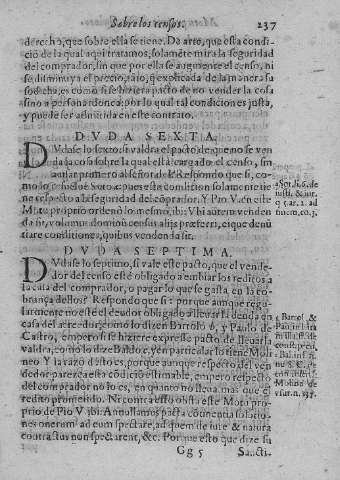 Sobre los censos. 237
derecho, que sobre ella se tiene. De arte, que esta condi-
ció de la qual aqui tratamos, solaméte mira la seguridad
del comprador, sin que por ella se augmente el censo, ni
se diminuya el precio, y assi explicada de la manera su
sodicha, es como si se hiziera pacto de no vender la cosa
sino a persona idonea: por lo qual tal condicion es justa,
y puede ser admitida en este contrato.
DVDA SEXTA.
DVdase lo sexto: si valdra el pacto, de que no se ven
da la cosa sobre la qual està cargado el censo, sin
auisar primero al señor del? Respondo que si, co-
mo lo enseña Soto: a pues esta condicion solamente tie
ne respecto a la seguridad del cóprador. Y Pio V. en este
Motu proprio ordenò lo mesmo, ibi: Vbi autem venden
da sit, volumus dominũ census alijs præferri, eique denũ
tiare conditiones, quibus vendenda sit.
a Sot. li. 6. de
iusti. & iur.
q 5. ar. 2. ad
finem. co. 3.
DVDA SEPTIMA.
DVdase lo septimo, si vale este pacto, que el vende-
dor del censo esté obligado a embiar los reditos a
la casa del comprador, o pagar lo que se gasta en la co-
brança dellos? Respondo que si: porque aunque regu-
larmente no esté el deudor obligado a lleuar la deuda en
casa del acreedor, como lo dizen Bartolo b, y Paulo de
Castro, empero si se hiziere expresse pacto de lleuarla,
valdra, como lo dize Baldo c, y en particular lo tiene Moli
neo. Y la razó desto es, porque aunque respecto del ven
dedor parezca esta códició estimable, empero respecto
del comprador no lo es, en quanto no lleua mas que el
credito prometido. Ni contra esto obsta este Motu pro-
prio de Pio V. ibi: Annullamos pacta continentia solutio-
nes onerum ad eum spectare, ad quem de iure & natura
contractus non spectarent, &c. Porque esto que dize su
b Bartol. &
Pau. in l.
c Bal. in
su C. de
Molin. de
vsur. n. 135.
Gg 5 Sancti-